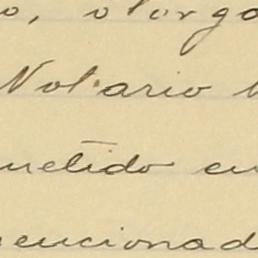 o, otorga
Notario
metido en
mencionad